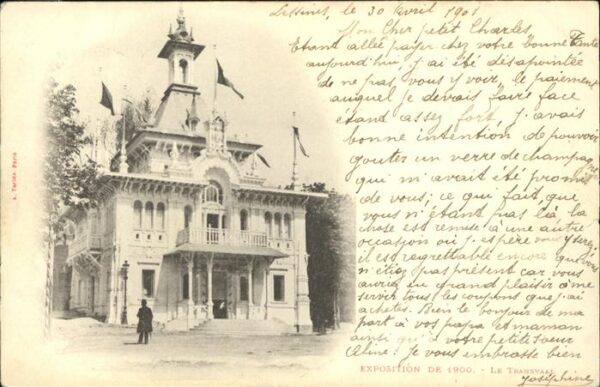 Lessines, le 30 Avril 1901
Mon Cher petit Charles,
Etant allée payer chez votre bonne tante
aujourd'hui, j'ai été désapointée
de ne pas vous y voir, le paiement
auquel je devais faire face
étant assez fort, j'avais
bonne intention de pouvoir
gouter un verre de champagne
qui m'avait été promis
de vous; ce qui fait, que
vous n'étant pas là, la
chose est remise à une autre
occasion où j'espère vous y serez,
il est regrettable encore que vous
n'étiez pas présent car vous
auriez eu grand plaisir à me
servir tous les coupons que j'ai
achetés. Bien le bonjour de ma
part à vos papa et maman
ainsi qu'à votre petite soeur
Aline. Je vous embrasse bien
Joséphine
EXPOSITION DE 1900. - LE TRANSVAAL
Paris